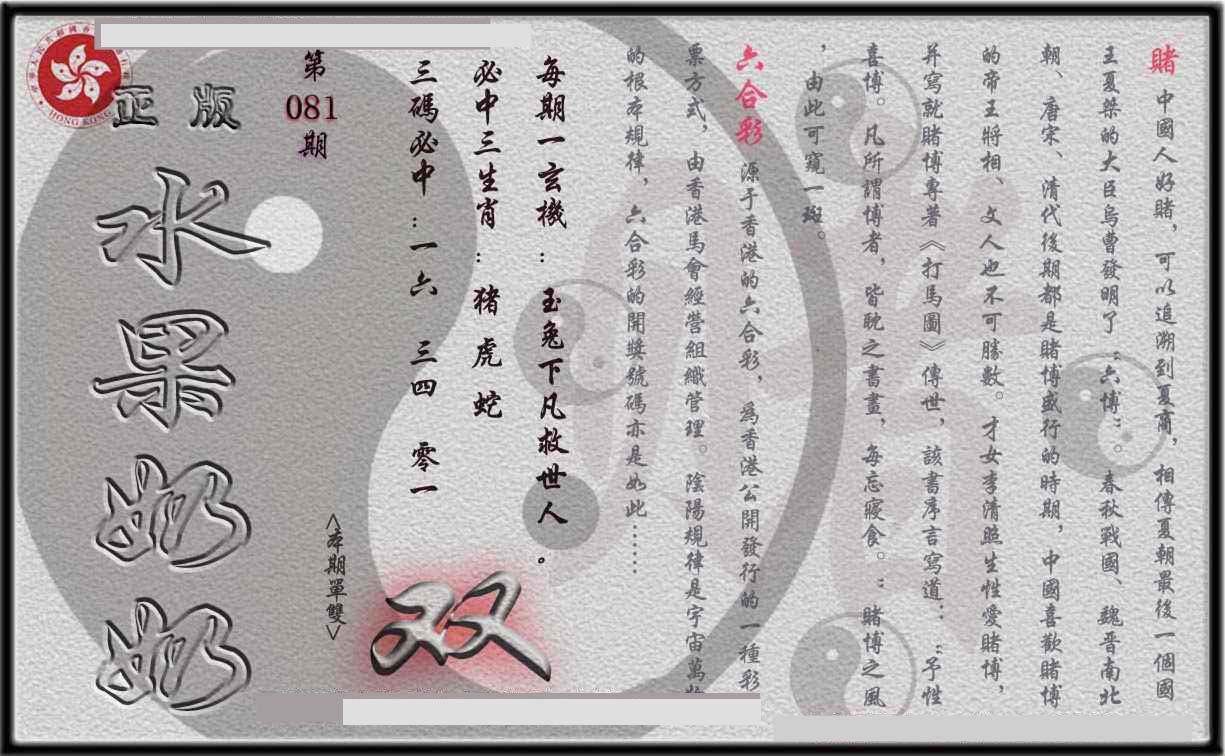 賭 中國人好賭，可以追溯到夏商，相傳夏朝最後一個國
王夏桀的大臣烏曹發明了“六博”。春秋戰國、魏晉南北
朝、唐宋、清代後期都是賭博盛行的時期，中國喜歡賭博
的帝王將相、文人也不可勝數。才女李清照生性愛賭博，
并寫就賭博專著《打馬圖》傳世，該書序言寫道：“予性
喜博。凡所謂博者，皆耽之書畫，每忘寢食。”賭博之風
，由此可窺一斑。
六合彩 源于香港的六合彩，爲香港公開發行的一種彩
票方式，由香港馬會經營組織管理。陰陽規律是宇宙萬物
的根本規律，六合彩的開獎號碼亦是如此……
每期一玄機：玉兔下凡救世人。
必中三生肖：猪虎蛇
三碼必中：一六 三四 零一
双
<本期單雙>
第081期
正版
水果奶奶
HONG KONG